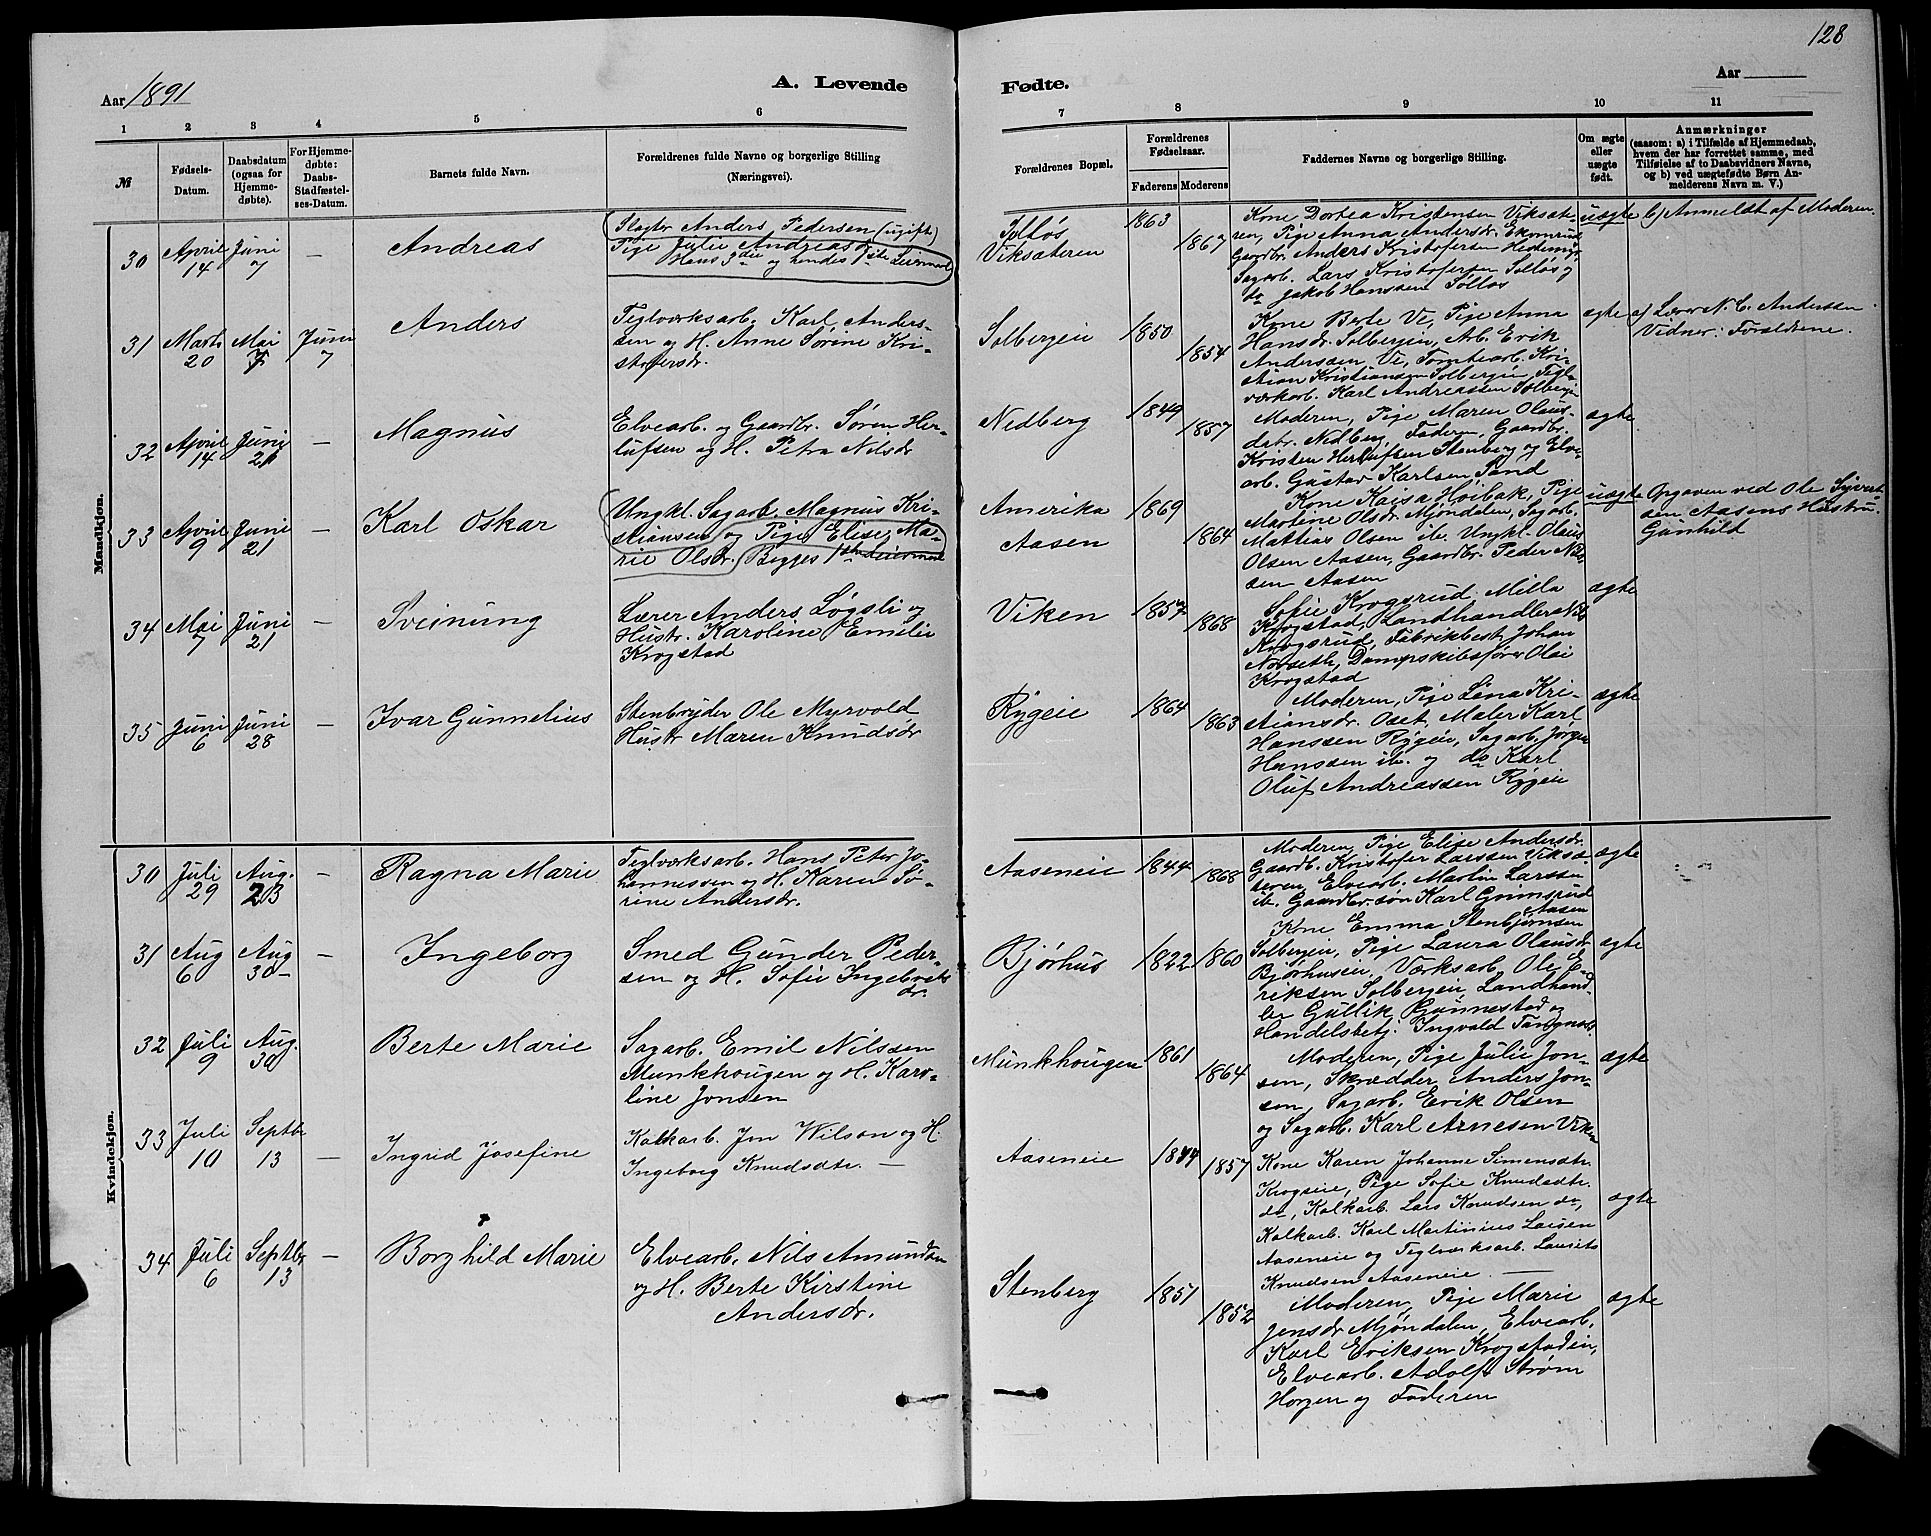 128
Aar 1891
A. Levende
Fødte.
Aar
1 2 3 4 5 6
7 8 9 10 11
№
Fødsels-
Datum.
Daabsdatum
(ogsaa for
Hjemme-
døbte).
For Hjemme-
døbte:
Daabs-
Stadfæstel-
ses-Datum.
Barnets fulde Navn.
Forældrenes fulde Navne og borgerlige Stilling
(Næringsvei).
Forældrenes Bopæl.
Forældrenes
Fødselsaar.
Faderens Moderens
Faddernes Navne og borgerlige Stilling.
Om ægte
eller
uægte
født.
Anmærkninger
(saasom: a) i Tilfælde af Hjemmedaab,
hvem der har forrettet samme, med
Tilføielse af to Daabsvidners Navne,
og b) ved uægtefødte Børn An-
melderens Navn m. V.)
Mandkjøn.
30
April
14
Juni
7
—
Andreas
Slagter Anders Pedersen (ugift)
Pige Julie Andreasdr
Hans 3die og hendes 1ste Leiermaal
Soltøs
Viksæteren
1863
1867
Kone Dortea Kristensen Viksæte-
ren, Pige Anna Andersdr. Ekornrud
Gaardbr. Anders Kristofersen
Sagarb. Lars Kristofersen Soltøs
do Jakob Hanssen Soltøs
uægte
b) Anmeldt af Moderen.
31
Marts
20
Mai
7
Juni
7
Anders
Teglværksarb. Karl Anders-
sen og H. Anne Sørine Kri-
stofersdr.
Solbergeie
1850
1854
Kone Berte Ve, Pige Anna
Hansdr. Solbergeie, Arb. Erik
Anderssen, Ve, Tomtearb. Kri-
stian Kristiansen Solbergeie, Tegl-
værkarb. Karl Andreassen Solbergeie
ægte
a) Lærer N. C. Andersen
Vidner: Forældrene.
32
April
14
Juni
21
—
Magnus
Elvearb. og Gaardbr. Søren Her-
lufsen og H. Petra Nilsdr
Nedberg
1849
1857
Moderen, Pige Maren Olaus-
datr. Nedberg, Faderen, Gaardbr.
Kristen Herlufsen Stenberg og Elve-
arb. Gustav Karlsen, Sand
ægte
33
April
9
Juni
21
—
Karl Oskar
Ungkl. Sagarb. Magnus Kri-
stiansen og Pige Elise Ma-
rie Olsdr. Begges 1ste Leiermaal
Amerika
Aasen
1869
1864
Kone Kaisa Høibak, Pige
Martine Olsdr. Mjøndalen, Sagarb.
Mattias Olsen ib. Ungkl. Olaus
Olsen Aasen, Gaardbr. Peder Nil-
sen Aasen
uægte
Opgaven ved Ole Syvert-
sen Aasens Hustru
Gunhild
34
Mai
7
Juni
21
—
Sveinung
Lærer Anders Løgsli og
Hustr. Karoline Emilie
Krogstad
Viken
1857
1868
Sofie Krogsrud, Milla
Krogstad, Landhandler Nils
Krogsrud, Fabrikbest. Johan
Norseth, Dampskibsfører Olai
Krogstad
ægte
35
Juni
6
Juni
28
—
Ivar Gunnelius
Stenbryder Ole Myrvold
Hustr Maren Knudsdr
Rygeie
1864
1863
Moderen, Pige Lina Kri-
stiansdr. Oset, Maler Karl
Hanssen Rygeie, Sagarb. Jørgen
Hanssen ib. og do Karl
Oluf Andreassen Rygeie
ægte
Kvindekjøn.
30
Juli
29
Aug.
23
—
Ragna Marie
Teglværksarb. Hans Peter Jo-
hannessen og H. Karen Sø-
rine Andersdr.
Aaseneie
1844
1868
Moderen, Pige Elise Andersdr
Gaardb. Kristofer Larssen Viksæ-
teren, Elvearb. Martin Larssen
ib. Gaardbr.søn Karl Grimsrud
Aasen
ægte
31
Aug
6
Aug
30
—
Ingeborg
Smed Gunder Peder-
sen og H. Sofie Ingebrets
dr.
Bjørhus
1822
1860
Kone Emma Stenbjørnsen
Solbergeie, Pige Laura Olausdr
Bjørhuseie, Værksarb. Ole E-
riksen Solbergeie, Landhand-
ler Gullik Gunnestad og
Handelsbetj. Ingvald
ægte
32
Juli
9
Aug.
30
—
Berte Marie
Sagarb. Emil Nilssen
Munkhougen og H. Karo-
line Jonsen
Munkhougen
1861
1864
Moderen, Pige Julie Jon-
sen, Skrædder Anders Jon-
sen, Sagarb. Erik Olsen
og Sagarb. Karl Arnesen Viken
ægte
33
Juli
10
Septbr
13
—
Ingrid Josefine
Kalkarb. Jon Wilson og H.
Ingeborg Knudsdtr. —
Aaseneie
1844
1857
Kone Karen Johanne Simensdtr.
Krogseie, Pige Sofie Knudsdtr.
do, Kalkarb. Lars Knudsen do,
Kalkarb. Karl Martinius Larsen
Aaseneie og Teglværksarb. Laurits
Knudsen Aaseneie. —
ægte
34
Juli
6
Septbr
13
—
Borghild Marie
Elvearb. Nils Amundsen
og H. Berte Kirstine
Andersdr.
Stenberg
1851
1852
Moderen, Pige Marie
Jensdr Mjøndalen, Elvearb.
Karl Eriksen Krogstadeie,
Elvearb. Adolf Strøm
Horgen og Faderen
ægte